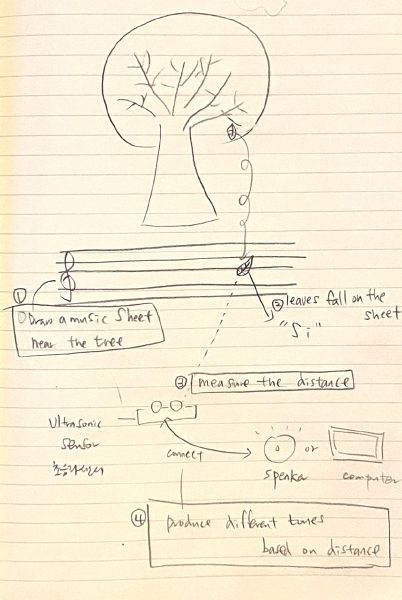 ①
Draw a music sheet
near the tree
② leaves fall on the
sheet
"Si"
③ measure the distance
Ultrasonic
sensor
초음파센서
connect
speaker
or
computer
④ produce different tunes
based on distance